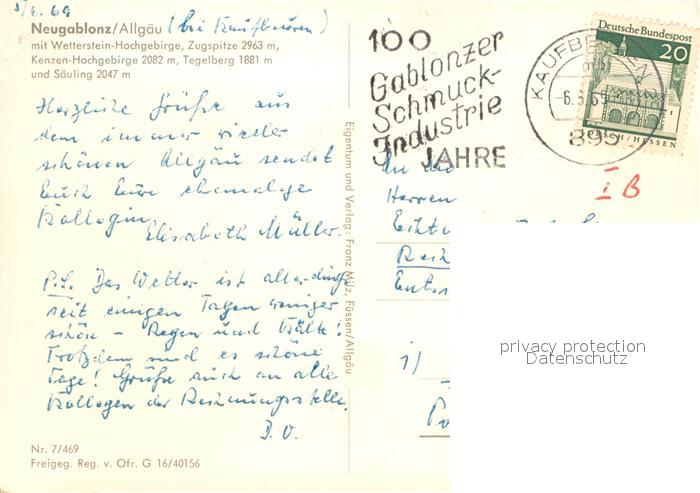 5/6.69
Neugablonz/Allgäu (bei Kaufbeuren)
mit Wetterstein-Hochgebirge, Zugspitze 2963 m,
Kenzen-Hochgebirge 2082 m, Tegelberg 1881 m
und Säuling 2047 m
Herzliche Grüße aus
dem immer wieder
schönen Allgäu sendet
Euch Eure ehemalige
Kollegin
Elisabeth Müller.
P.S. Das Wetter ist allerdings
seit einigen Tagen weniger
schön – Regen und Kälte.
Trotzdem sind es schöne
Tage! Grüße auch an alle
Kollegen der Rechnungsstelle.
D. O.
Nr. 7/469
Freigeg. Reg. v. Ofr. G 16/40156
Eigentum und Verlag: Franz Milz, Füssen/Allgäu
100
Gablonzer
Schmuck-
Industrie
JAHRE
KAUFBEUREN
-6.6.69
895
Deutsche Bundespost
20
LORSCH/HESSEN
I B
An die
Herren
privacy protection
Datenschutz